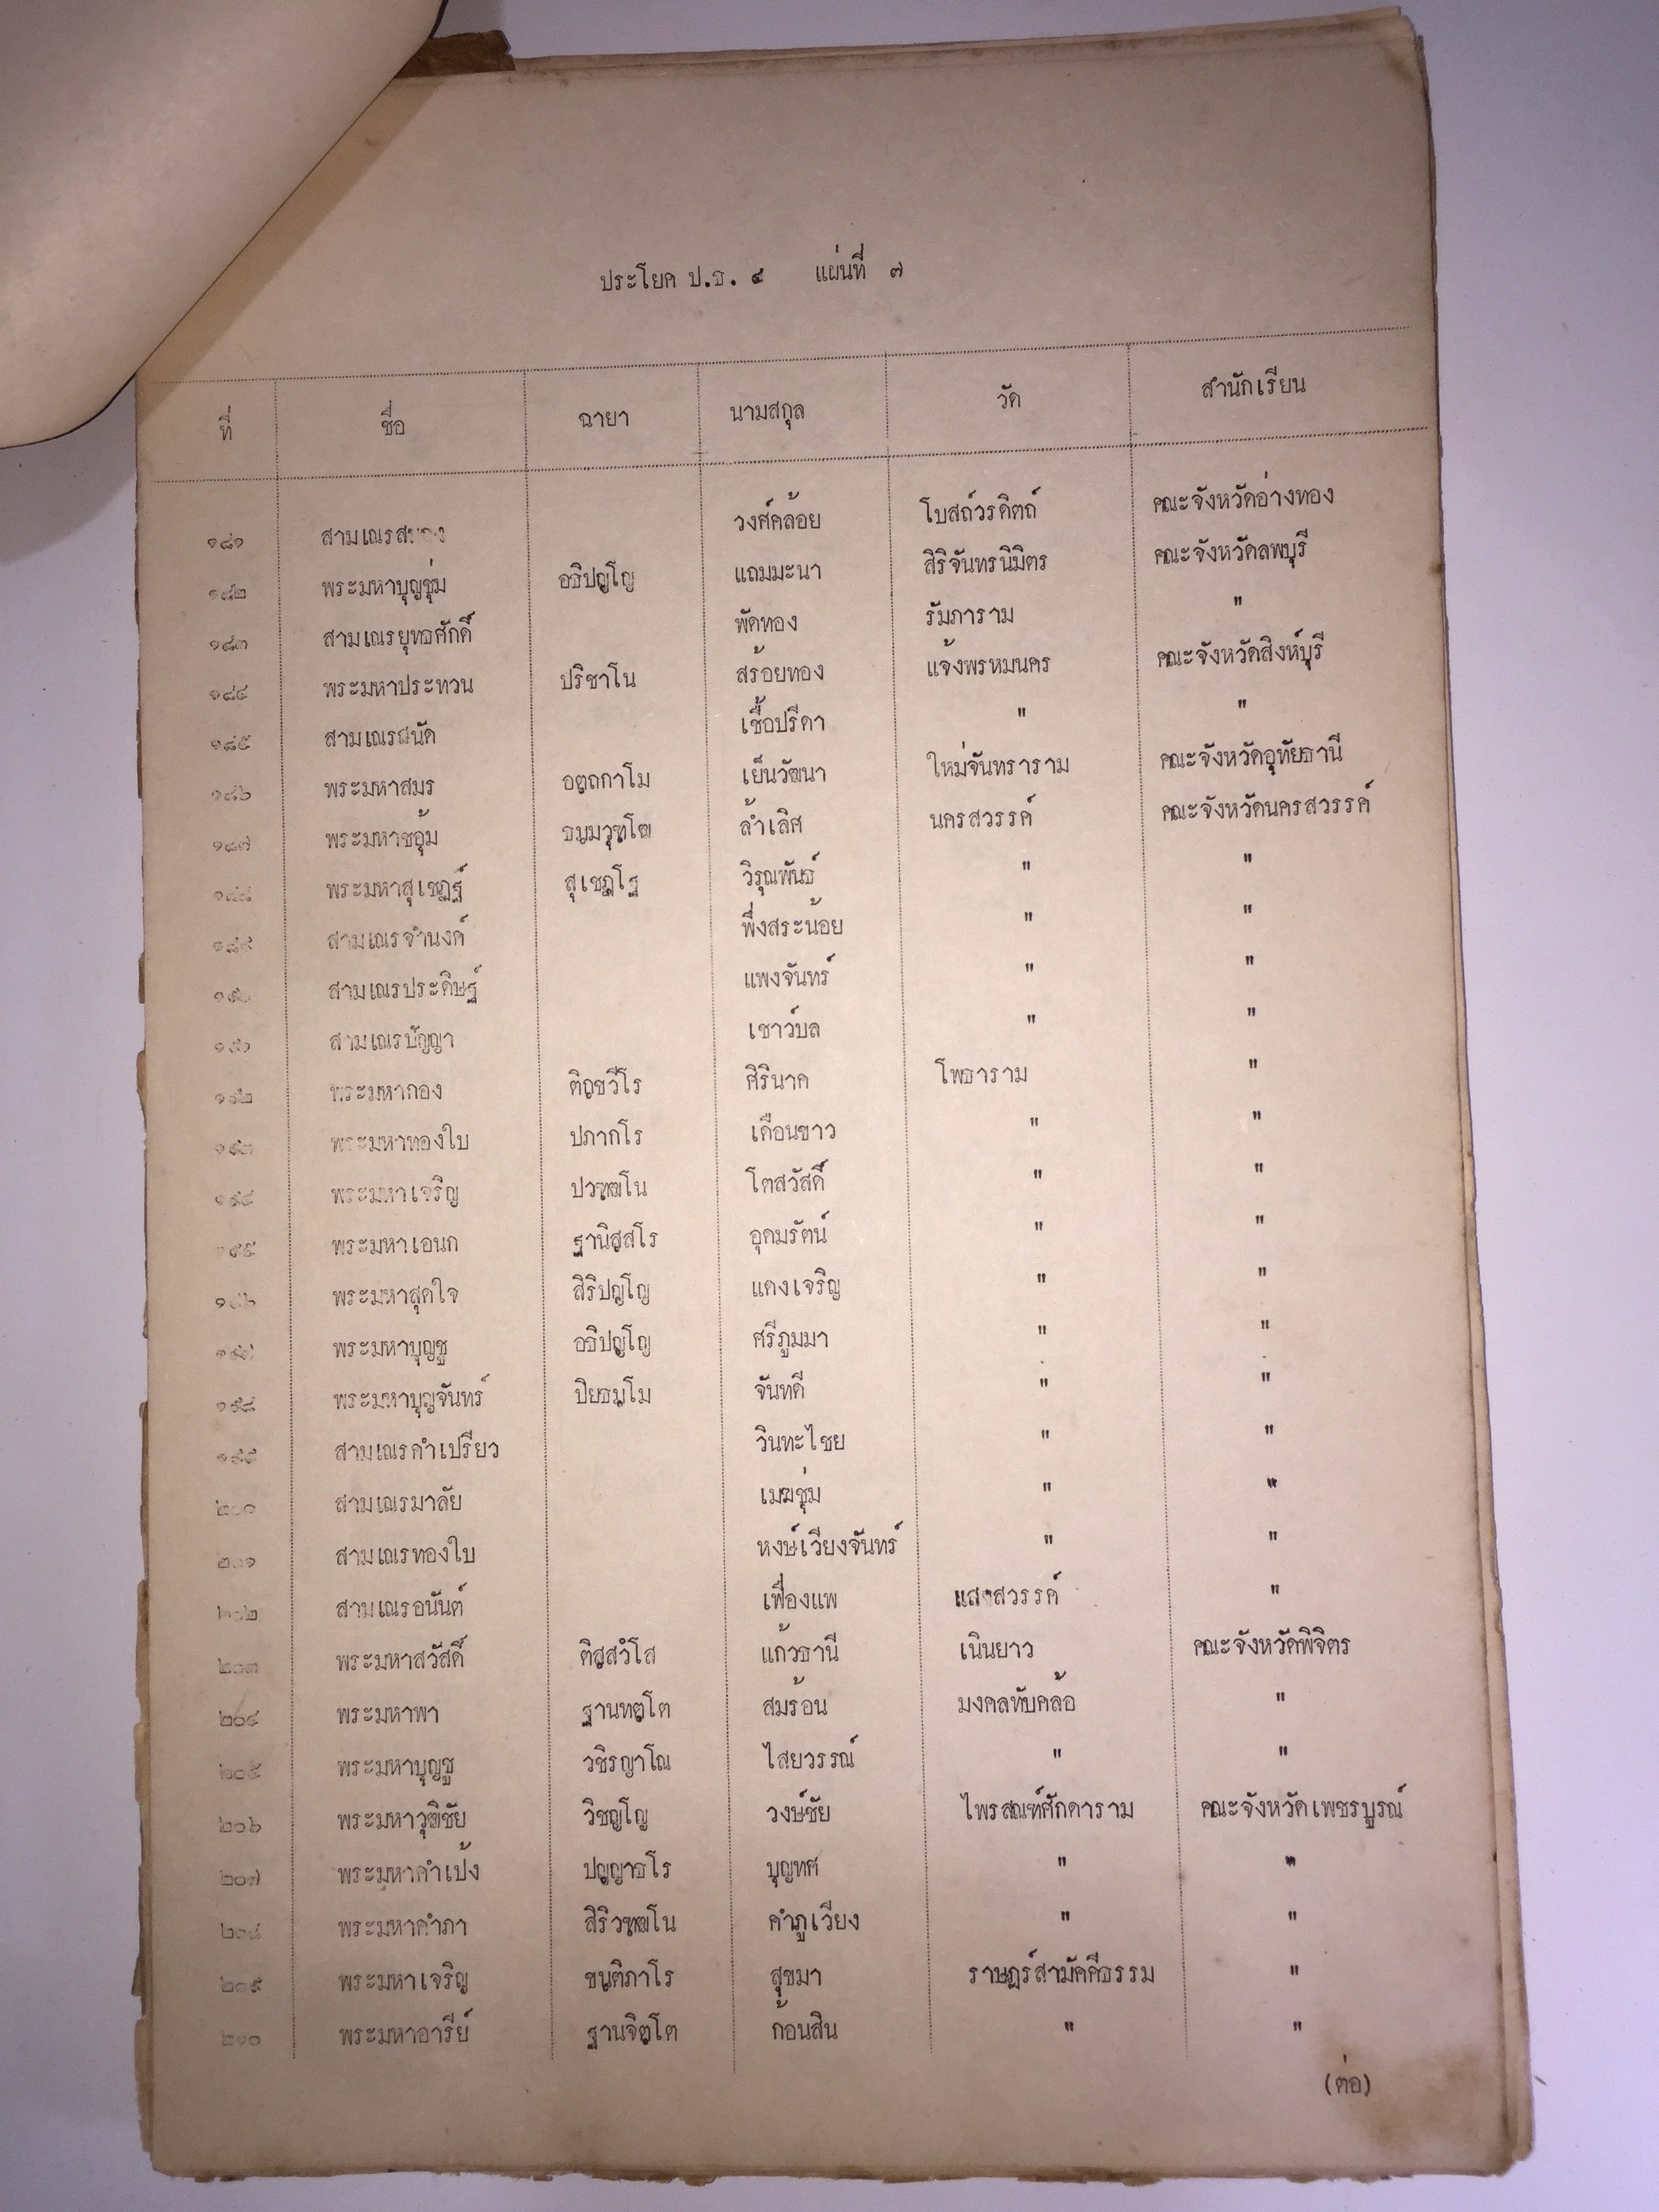 ประโยค ป.ธ. ๔ แผ่นที่ ๗
ที่ ชื่อ ฉายา นามสกุล วัด สำนักเรียน
๑๘๑ วงศ์คล้อย โบสถ์วรดิตถ์ คณะจังหวัดอ่างทอง
๑๘๒ พระมหาบุญชุ่ม อธิปญฺโญ แถมมะนา สิริจันทรนิมิตร คณะจังหวัดลพบุรี
๑๘๓ สามเณรยุทธศักดิ์ พัดทอง รัมภาราม "
๑๘๔ พระมหาประทวน ปริชาโน สร้อยทอง แจ้งพรหมนคร คณะจังหวัดสิงห์บุรี
๑๘๕ สามเณรสนัด เชื้อปรีดา " "
๑๘๖ พระมหาสมร อตฺถกาโม เย็นวัฒนา ใหม่จันทราราม คณะจังหวัดอุทัยธานี
๑๘๗ พระมหาชอุ้ม ธมฺมวุฑฺโฒ ล้ำเลิศ นครสวรรค์ คณะจังหวัดนครสวรรค์
๑๘๘ พระมหาสุเชฏฐ์ สุเชฏฺโฐ วิรุณพันธ์ " "
๑๘๙ สามเณรจำนงค์ พึ่งสระน้อย " "
๑๙๐ สามเณรประดิษฐ์ แพงจันทร์ " "
๑๙๑ สามเณรปัญญา เชาว์บล " "
๑๙๒ พระมหากอง ติกฺขวีโร ศิรินาค โพธาราม "
๑๙๓ พระมหาทองใบ ปภากโร เดือนขาว " "
๑๙๔ พระมหาเจริญ ปวฑฺฒโน โตสวัสดิ์ " "
๑๙๕ พระมหาเอนก ฐานิสฺสโร อุดมรัตน์ " "
๑๙๖ พระมหาสุดใจ สิริปญฺโญ แดงเจริญ " "
๑๙๗ พระมหาบุญชู อธิปญฺโญ ศรีภูมมา " "
๑๙๘ พระมหาบุญจันทร์ ปิยธมฺโม จันทดี " "
๑๙๙ สามเณรคำเปรียว วินทะไชย " "
๒๐๐ สามเณรมาลัย เมฆชุ่ม " "
๒๐๑ สามเณรทองใบ หงษ์เวียงจันทร์ " "
๒๐๒ สามเณรอนันต์ เฟื่องแพ แสงสวรรค์ "
๒๐๓ พระมหาสวัสดิ์ ติสฺสวํโส แก้วธานี เนินยาว คณะจังหวัดพิจิตร
๒๐๔ พระมหาพา ฐานทตฺโต สมร้อน มงคลทับคล้อ "
๒๐๕ พระมหาบุญชู วชิรญาโณ ไสยวรรณ์ " "
๒๐๖ พระมหาวุฒิชัย วิชญฺโญ วงษ์ชัย ไพรสณฑ์ศักดาราม คณะจังหวัดเพชรบูรณ์
๒๐๗ พระมหาคำเป้ง ปญฺญาธโร บุญทศ " "
๒๐๘ พระมหาคำภา สิริวฑฺฒโน คำภูเวียง " "
๒๐๙ พระมหาเจริญ ขนฺติภาโร สุขมา ราษฎร์สามัคคีธรรม "
๒๑๐ พระมหาอารีย์ ฐานจิตฺโต ก้อนสิน " "
(ต่อ)